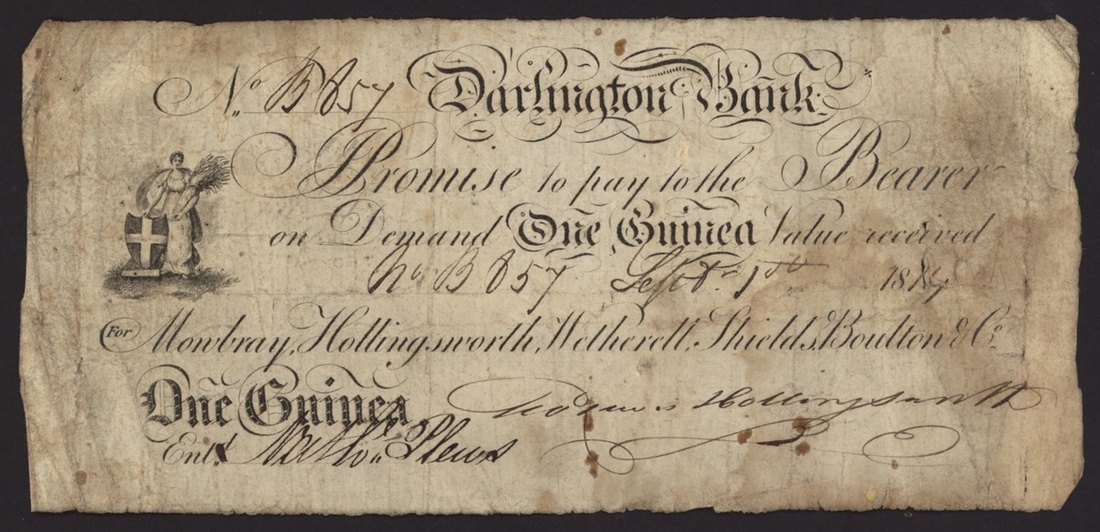 No. B 857 Darlington Bank
I Promise to pay to the Bearer
on Demand One Guinea Value received
No B 857 Sept. 1st 1814
For Mowbray, Hollingsworth, Wetherell, Shields, Boulton & Co.
One Guinea Hollingsworth
Entd. Plews